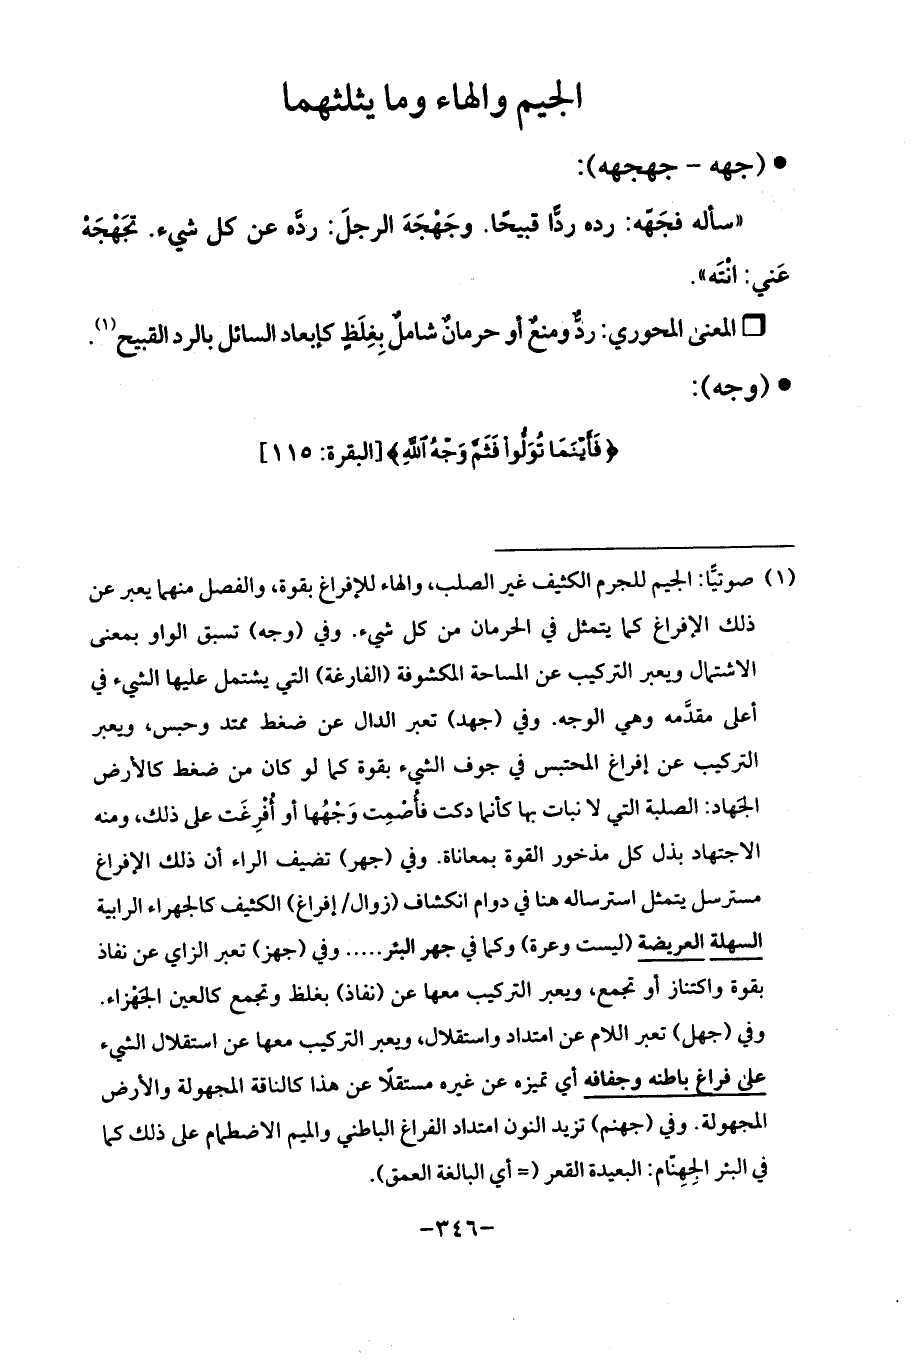 الجيم والهاء وما يثلثهما
● (جهه – جهجهه):
«سأله فجَهّه: رده ردًّا قبيحًا. وجَهْجَهَ الرجلَ: ردَّه عن كل شيء. تجَهْجَهْ
عَني: انْتَه».
❒ المعنى المحوري: ردٌّ ومنعٌ أو حرمانٌ شاملٌ بِغِلَظٍ كإبعاد السائل بالرد القبيح(١).
● (وجه):
﴿فَأَيْنَمَا تُوَلُّواْ فَثَمَّ وَجْهُ ٱللَّهِ﴾ [البقرة: ١١٥]
(١) صوتيًّا: الجيم للجرم الكثيف غير الصلب، والهاء للإفراغ بقوة، والفصل منهما يعبر عن
ذلك الإفراغ كما يتمثل في الحرمان من كل شيء. وفي (وجه) تسبق الواو بمعنى
الاشتمال ويعبر التركيب عن المساحة المكشوفة (الفارغة) التي يشتمل عليها الشيء في
أعلى مقدَّمه وهي الوجه. وفي (جهد) تعبر الدال عن ضغط ممتد وحبس، ويعبر
التركيب عن إفراغ المحتبس في جوف الشيء بقوة كما لو كان من ضغط كالأرض
الجَهاد: الصلبة التي لا نبات بها كأنما دكت فأُصْمِت وَجْهُها أو أُفْرِغَت على ذلك، ومنه
الاجتهاد بذل كل مذخور القوة بمعاناة. وفي (جهر) تضيف الراء أن ذلك الإفراغ
مسترسل يتمثل استرساله هنا في دوام انكشاف (زوال/ إفراغ) الكثيف كالجهراء الرابية
السهلة العريضة (ليست وعرة) وكما في جهر البئر..... وفي (جهز) تعبر الزاي عن نفاذ
بقوة واكتناز أو تجمع، ويعبر التركيب معها عن (نفاذ) بغلظ وتجمع كالعين الجَهْزاء.
وفي (جهل) تعبر اللام عن امتداد واستقلال، ويعبر التركيب معها عن استقلال الشيء
على فراغ باطنه وجفافه أي تميزه عن غيره مستقلًا عن هذا كالناقة المجهولة والأرض
المجهولة. وفي (جهنم) تزيد النون امتداد الفراغ الباطني والميم الاضطمام على ذلك كما
في البئر الجِهِنّام: البعيدة القعر (= أي البالغة العمق).
-٣٤٦-